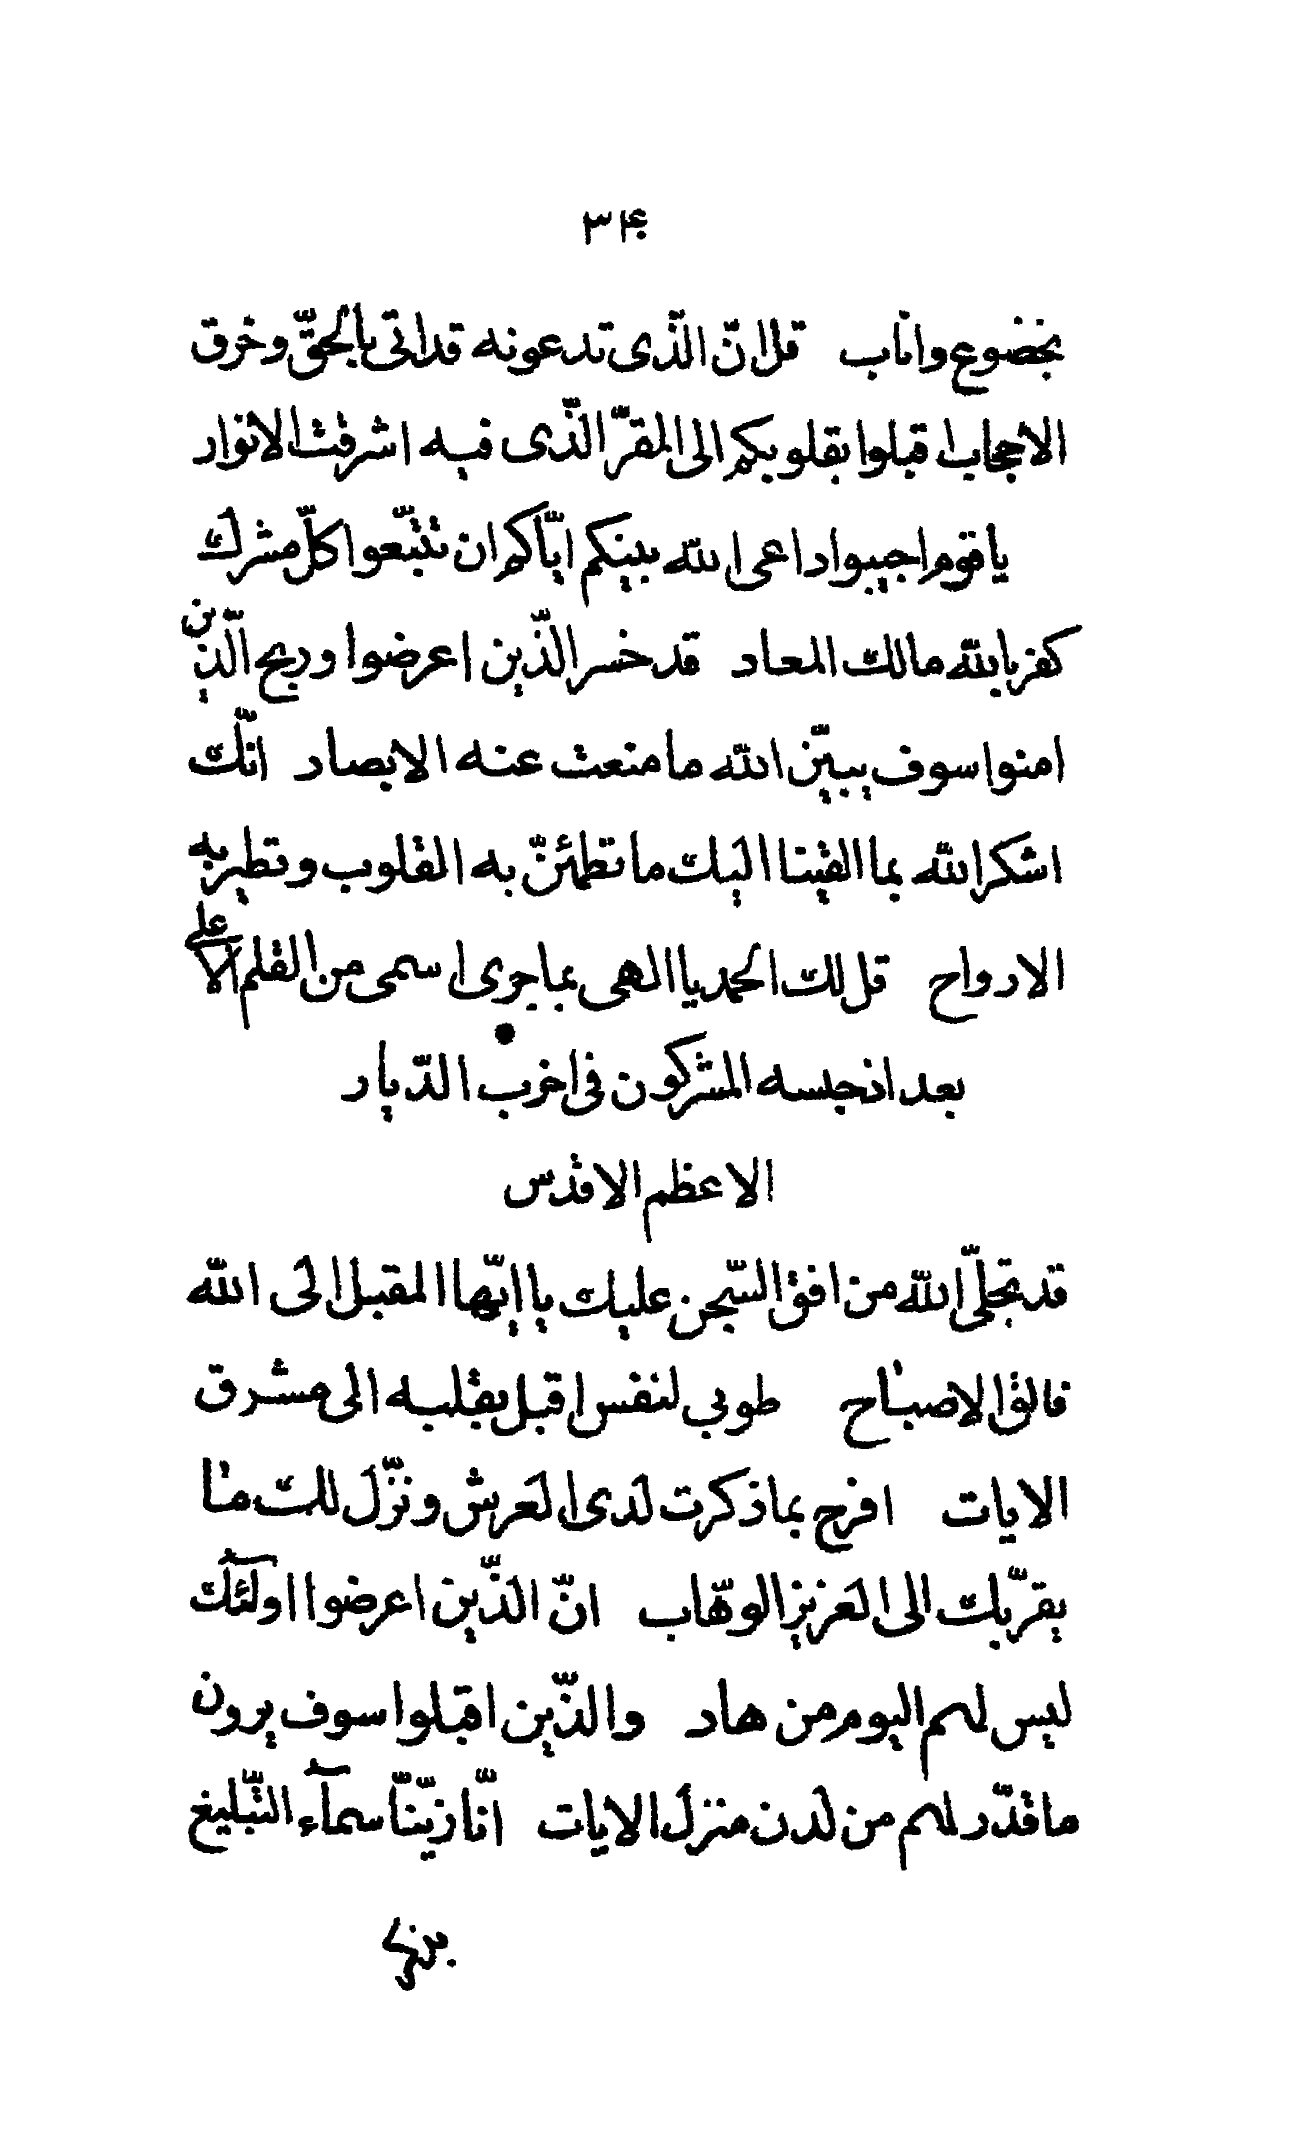 ۳۴
بخضوع واناب قل انّ الّذی تدعونه قد اتی بالحقّ و خرق
الاحجاب اقبلوا بقلوبکم الی المقرّ الّذی فیه اشرقت الانوار
یا قوم اجیبوا داعی الله بینکم ایّاکم ان تتّبعوا کلّ مشرک
کفر بالله مالک المعاد قد خسر الّذین اعرضوا وربح الّذین
امنوا سوف یبیّن الله ما منعت عنه الابصار انّک
اشکر الله بما القینا الیک ما تطمئنّ به القلوب و تطیر به
الارواح قل لک الحمد یا الهی بما جری اسمی من القلم الاعلی
بعد اذ حبسه المشرکون فی اخرب الدّیار
الاعظم الاقدس
قد تجلّی الله من افق السّجن علیک یا ایّها المقبل الی الله
فالق الاصباح طوبی لنفس اقبل بقلبه الی مشرق
الایات افرح بما ذکرت لدی العرش و نزّل لک ما
یقرّبک الی العزیز الوهّاب انّ الّذین اعرضوا اولئک
لیس لهم الیوم من هاد والّذین اقبلوا سوف یرون
ما قدّر لهم من لدن منزل الایات انّا زیّنّا سمآء التّبلیغ